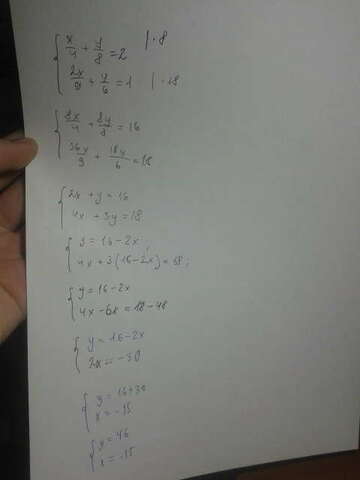 x/4 + y/8 = 2 | · 8
2x/9 + y/6 = 1 | · 18
8x/4 + 8y/8 = 16
36x/9 + 18y/6 = 18
2x + y = 16
4x + 3y = 18
y = 16 - 2x;
4x + 3(16 - 2x) = 18;
y = 16 - 2x
4x - 6x = 18 - 48
y = 16 - 2x
2x = -30
y = 16 + 30
x = -15
y = 46
x = -15